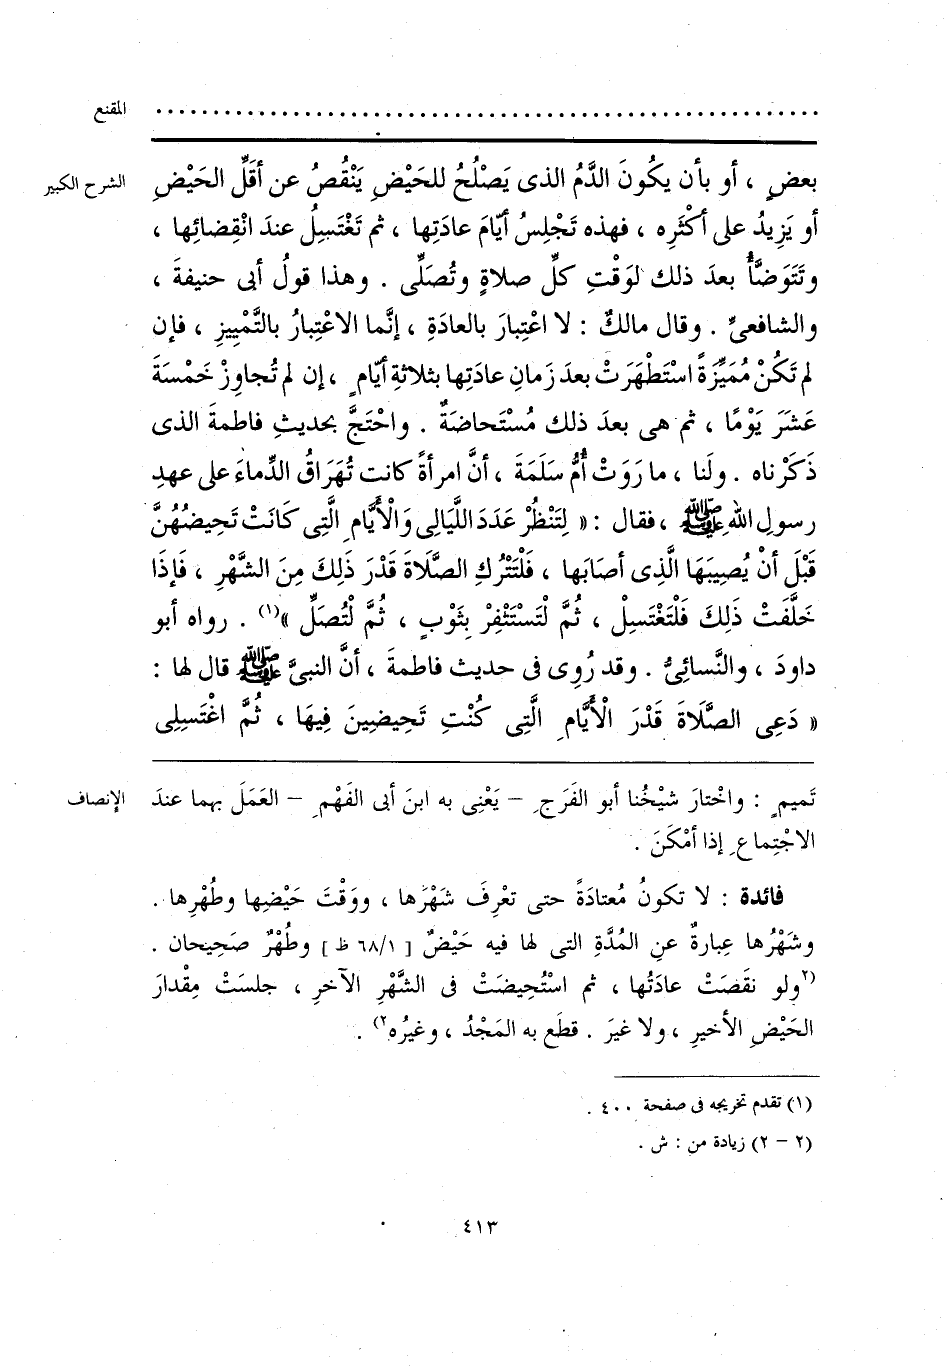 المقنع ............................................................
الشرح الكبير بعضٍ ، أو بأن يكُونَ الدَّمُ الذى يَصْلُحُ للحَيْضِ يَنْقُصُ عن أقَلِّ الحَيْضِ
أو يَزِيدُ على أكْثَرِه ، فهذه تَجْلِسُ أيّامَ عادَتِها ، ثم تَغْتَسِلُ عندَ انْقِضائِها ،
وتَتَوَضَّأُ بعدَ ذلك لوَقْتِ كلِّ صلاةٍ وتُصَلِّى . وهذا قولُ أبى حنيفةَ ،
والشافعىِّ . وقال مالكٌ : لا اعْتِبارَ بالعادَةِ ، إنَّما الاعْتِبارُ بالتَّمْييزِ ، فإن
لم تَكُنْ مُمَيِّزَةً اسْتَطْهَرَتْ بعدَ زَمانِ عادَتِها بثلاثةِ أيّامٍ ، إن لم تُجاوِزْ خَمْسَةَ
عَشَرَ يَوْمًا ، ثم هى بعدَ ذلك مُسْتَحاضَةٌ . واحْتَجَّ بحديثِ فاطمةَ الذى
ذَكَرْناه . ولَنا ، ما رَوَتْ أُمُّ سَلَمَةَ ، أنَّ امرأةً كانت تُهَرَاقُ الدِّماءَ على عهدِ
رسولِ اللهِ ﷺ ، فقال : « لِتَنْظُرْ عَدَدَ اللَّيَالِى وَالْأَيَّامِ الَّتِى كَانَتْ تَحِيضُهُنَّ
قَبْلَ أنْ يُصِيبَهَا الَّذِى أصَابَها ، فَلْتَتْرُكِ الصَّلَاةَ قَدْرَ ذَلِكَ مِنَ الشَّهْرِ ، فَإذَا
خَلَّفَتْ ذَلِكَ فَلْتَغْتَسِلْ ، ثُمَّ لْتَسْتَثْفِرْ بِثَوْبٍ ، ثُمَّ لْتُصَلِّ »(١) . رواه أبو
داودَ ، والنَّسائِىُّ . وقد رُوِى فى حديث فاطمةَ ، أنَّ النبىَّ ﷺ قال لها :
« دَعِى الصَّلَاةَ قَدْرَ الْأَيَّامِ الَّتِى كُنْتِ تَحِيضِينَ فِيهَا ، ثُمَّ اغْتَسِلِى
الإنصاف تَميمٍ : واخْتارَ شيْخُنا أبو الفَرَجِ – يَعْنِى به ابنَ أبى الفَهْمِ – العَمَلَ بهما عندَ
الاجْتِماعِ إذا أمْكَنَ .
فائدة : لا تكونُ مُعتادَةً حتى تعْرِفَ شَهْرَها ، ووَقْتَ حَيْضِها وطُهْرِها .
وشَهْرُها عِبارةٌ عنِ المُدَّةِ التى لها فيه حَيْضٌ [ ٦٨/١ ظ ] وطُهْرٌ صَحِيحان .
(٢ولو نقَصَتْ عادَتُها ، ثم اسْتُحِيضَتْ فى الشَّهْرِ الآخرِ ، جلسَتْ مِقْدارَ
الحَيْضِ الأخيرِ ، ولا غيرَ . قطَع به المَجْدُ ، وغيرُه٢) .
(١) تقدم تخريجه فى صفحة ٤٠٠ .
(٢ – ٢) زيادة من : ش .
٤١٣